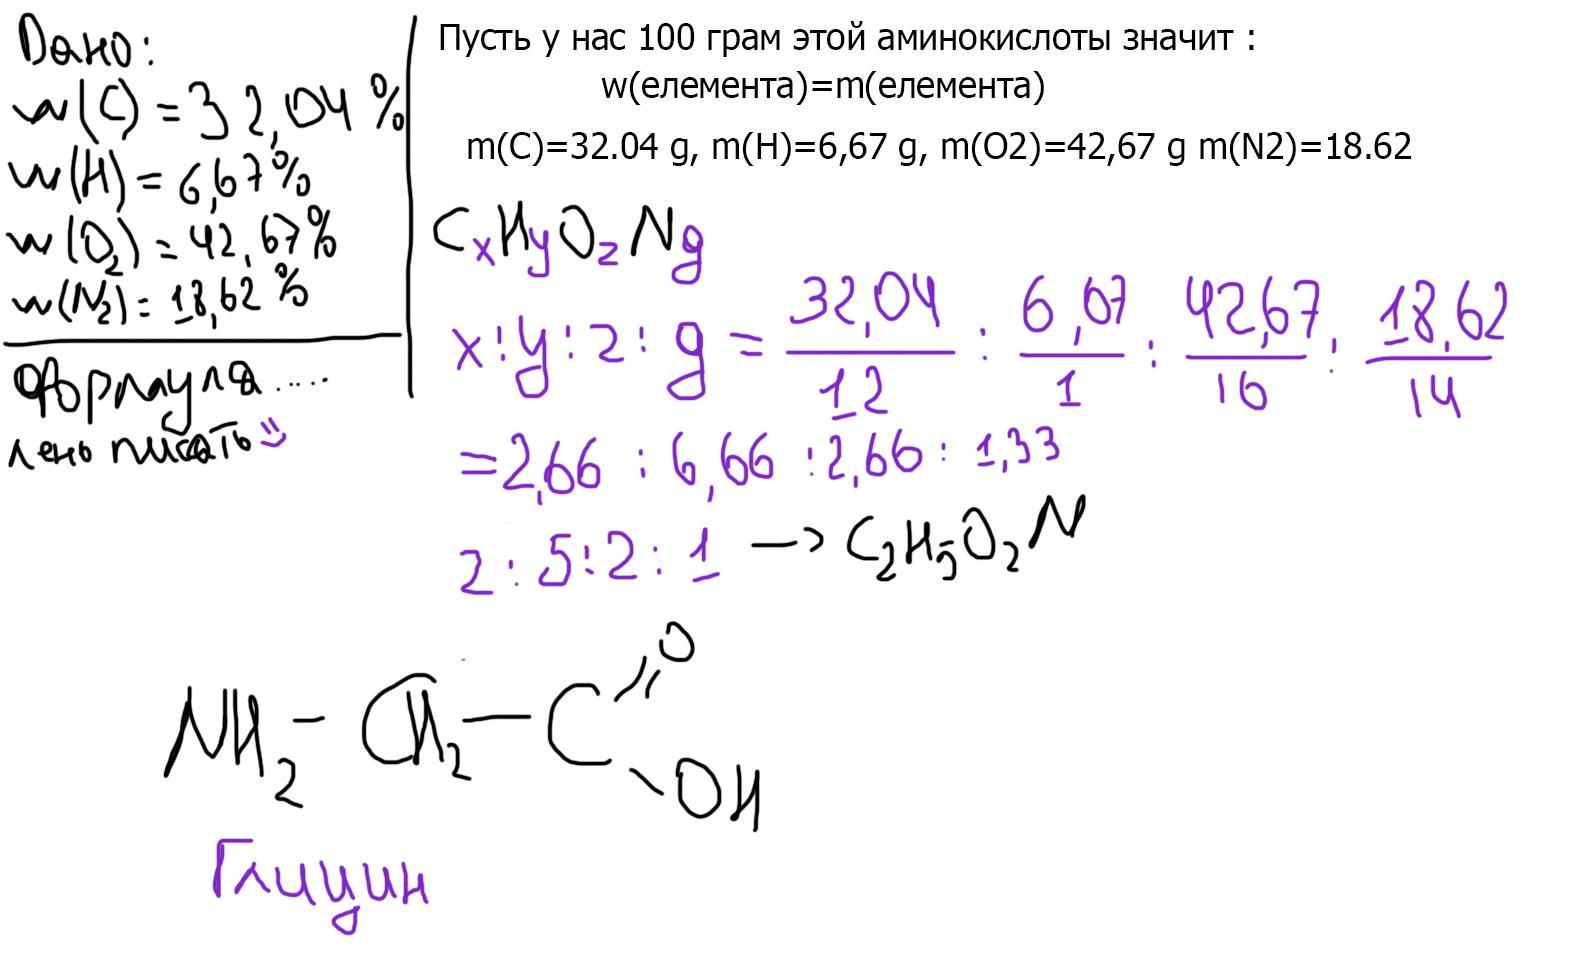 Дано:
w(C) = 32,04 %
w(H) = 6,67%
w(O₂) = 42,67%
w(N₂) = 18,62 %
Формула.....
лень писать
Пусть у нас 100 грам этой аминокислоты значит :
w(елемента)=m(елемента)
m(C)=32.04 g, m(H)=6,67 g, m(O2)=42,67 g m(N2)=18.62
CxHyOzNg
x:y:z:g = 32,04/12 : 6,67/1 : 42,67/16 : 18,62/14
=2,66 : 6,66 :2,66: 1,33
2:5:2:1 —> C₂H₅O₂N
O
NH₂ - CH₂ — C
OH
Глицин